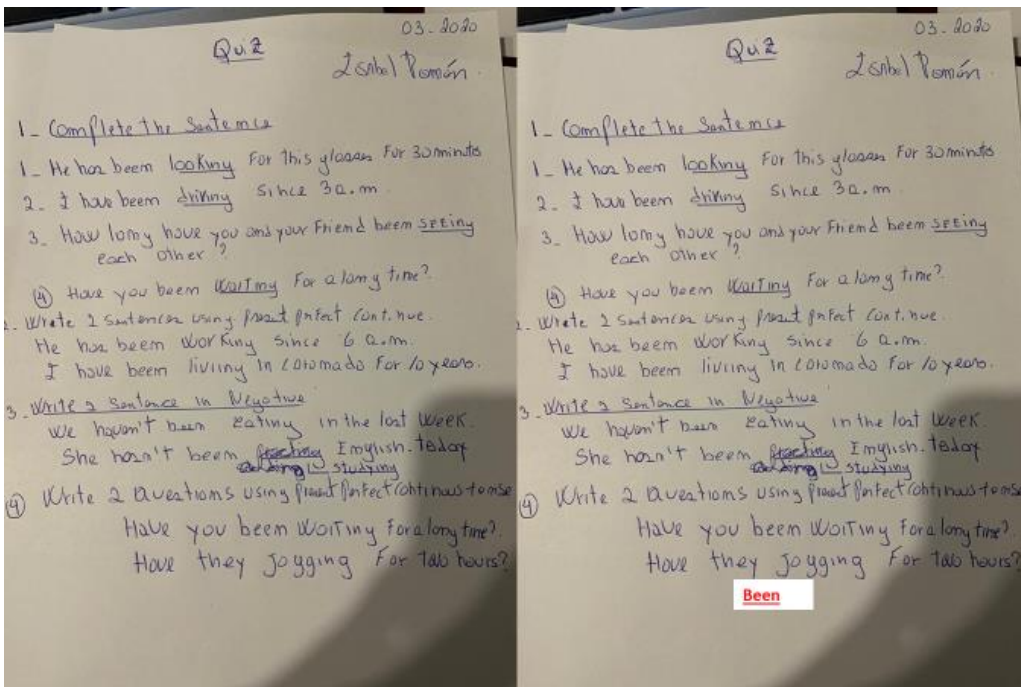 03-2020
Quiz
Isabel Román.
1- Complete the Sentence
1- He has been looking For this glasses For 30 minutes
2- I have been driving since 3a.m.
3- How long have you and your Friend been SEEing
each other?
④ Have you been waiting For a long time?
2- Write 2 Sentences using present prfect Continue.
He has been working since 6 a.m.
I have been living in Coronado For 10 years.
3- Write 2 Sentence in Negative
We haven't been Eating in the last week.
She hasn't been English. today
studying
④ Write 2 Questions using present Perfect Continous
Have you been waiting For a long time?
Have they Jogging For two hours?
03-2020
Quiz
Isabel Román.
1- Complete the Sentence
1- He has been looking For this glasses For 30 minutes
2- I have been driving since 3a.m.
3- How long have you and your Friend been SEEing
each other?
④ Have you been waiting For a long time?
2- Write 2 Sentences using present prfect Continue.
He has been working since 6 a.m.
I have been living in Coronado For 10 years.
3- Write 2 Sentence in Negative
We haven't been Eating in the last week.
She hasn't been English. today
studying
④ Write 2 Questions using present Perfect Continous
Have you been waiting For a long time?
Have they Jogging For two hours?
Been